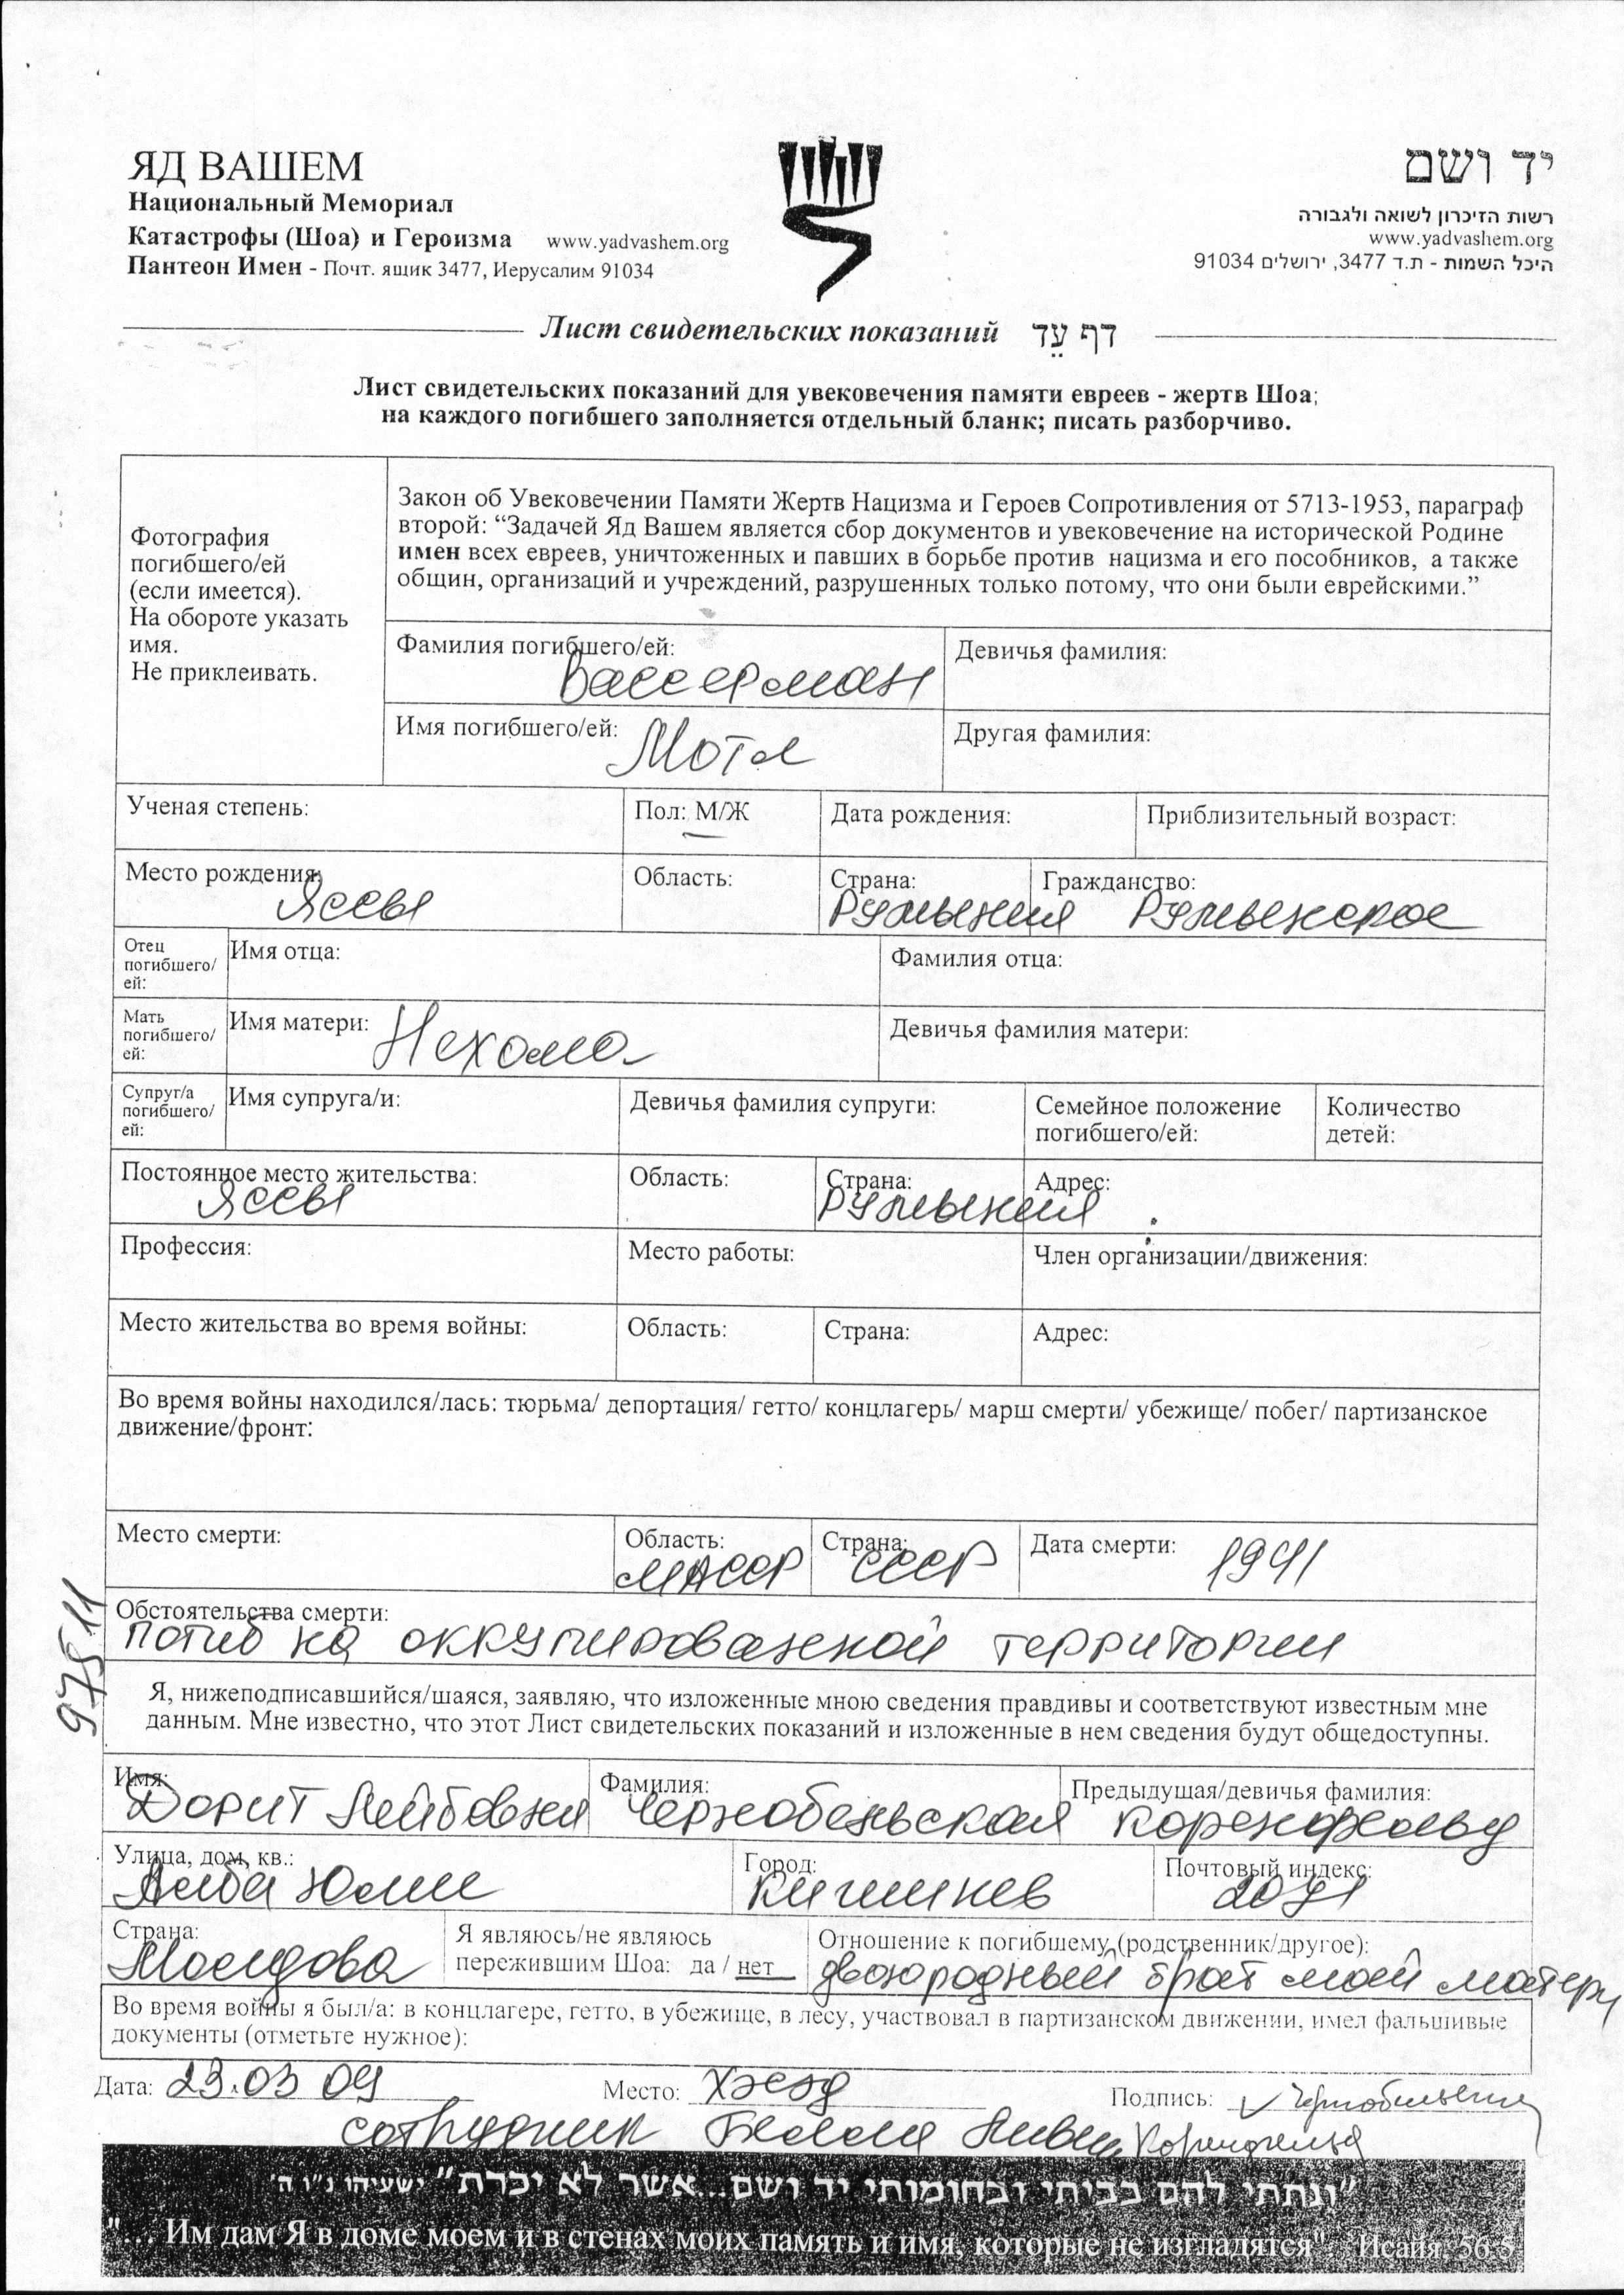 ЯД ВАШЕМ
Национальный Мемориал
Катастрофы (Шоа) и Героизма www.yadvashem.org
Пантеон Имен - Почт. ящик 3477, Иерусалим 91034
יד ושם
רשות הזיכרון לשואה ולגבורה
www.yadvashem.org
היכל השמות - ת.ד 3477, ירושלים 91034
Лист свидетельских показаний דף עֵד
Лист свидетельских показаний для увековечения памяти евреев - жертв Шоа;
на каждого погибшего заполняется отдельный бланк; писать разборчиво.
Фотография
погибшего/ей
(если имеется).
На обороте указать
имя.
Не приклеивать.
Закон об Увековечении Памяти Жертв Нацизма и Героев Сопротивления от 5713-1953, параграф
второй: “Задачей Яд Вашем является сбор документов и увековечение на исторической Родине
имен всех евреев, уничтоженных и павших в борьбе против нацизма и его пособников, а также
общин, организаций и учреждений, разрушенных только потому, что они были еврейскими.”
Фамилия погибшего/ей: Вассерман
Девичья фамилия:
Имя погибшего/ей: Мотл
Другая фамилия:
Ученая степень:
Пол: М/Ж
Дата рождения:
Приблизительный возраст:
Место рождения: Яссы
Область:
Страна: Румыния
Гражданство: Румынское
Отец погибшего/ей:
Имя отца:
Фамилия отца:
Мать погибшего/ей:
Имя матери: Нехома
Девичья фамилия матери:
Супруг/а погибшего/ей:
Имя супруга/и:
Девичья фамилия супруги:
Семейное положение погибшего/ей:
Количество детей:
Постоянное место жительства: Яссы
Область:
Страна: Румыния
Адрес:
Профессия:
Место работы:
Член организации/движения:
Место жительства во время войны:
Область:
Страна:
Адрес:
Во время войны находился/лась: тюрьма/ депортация/ гетто/ концлагерь/ марш смерти/ убежище/ побег/ партизанское
движение/фронт:
Место смерти:
Область: МАССР
Страна: СССР
Дата смерти: 1941
Обстоятельства смерти:
погиб на оккупированной территории
97511
Я, нижеподписавшийся/шаяся, заявляю, что изложенные мною сведения правдивы и соответствуют известным мне
данным. Мне известно, что этот Лист свидетельских показаний и изложенные в нем сведения будут общедоступны.
Имя: Дорит Лейбовна
Фамилия: Чернобельская
Предыдущая/девичья фамилия:
Улица, дом, кв.: Алба Юлии
Город: Кишинев
Почтовый индекс: 2071
Страна: Молдова
Я являюсь/не являюсь
пережившим Шоа: да / нет
Отношение к погибшему (родственник/другое):
двоюродный брат моей матери
Во время войны я был/а: в концлагере, гетто, в убежище, в лесу, участвовал в партизанском движении, имел фальшивые
документы (отметьте нужное):
Дата: 23.03 09
Место: Хэсэд
Подпись:
сотрудник Белла
"ונתתי להם בביתי ובחומותי יד ושם...אשר לא יכרת" ישעיהו נ"ו ה'
"... Им дам Я в доме моем и в стенах моих память и имя, которые не изгладятся". Исайя, 56:5